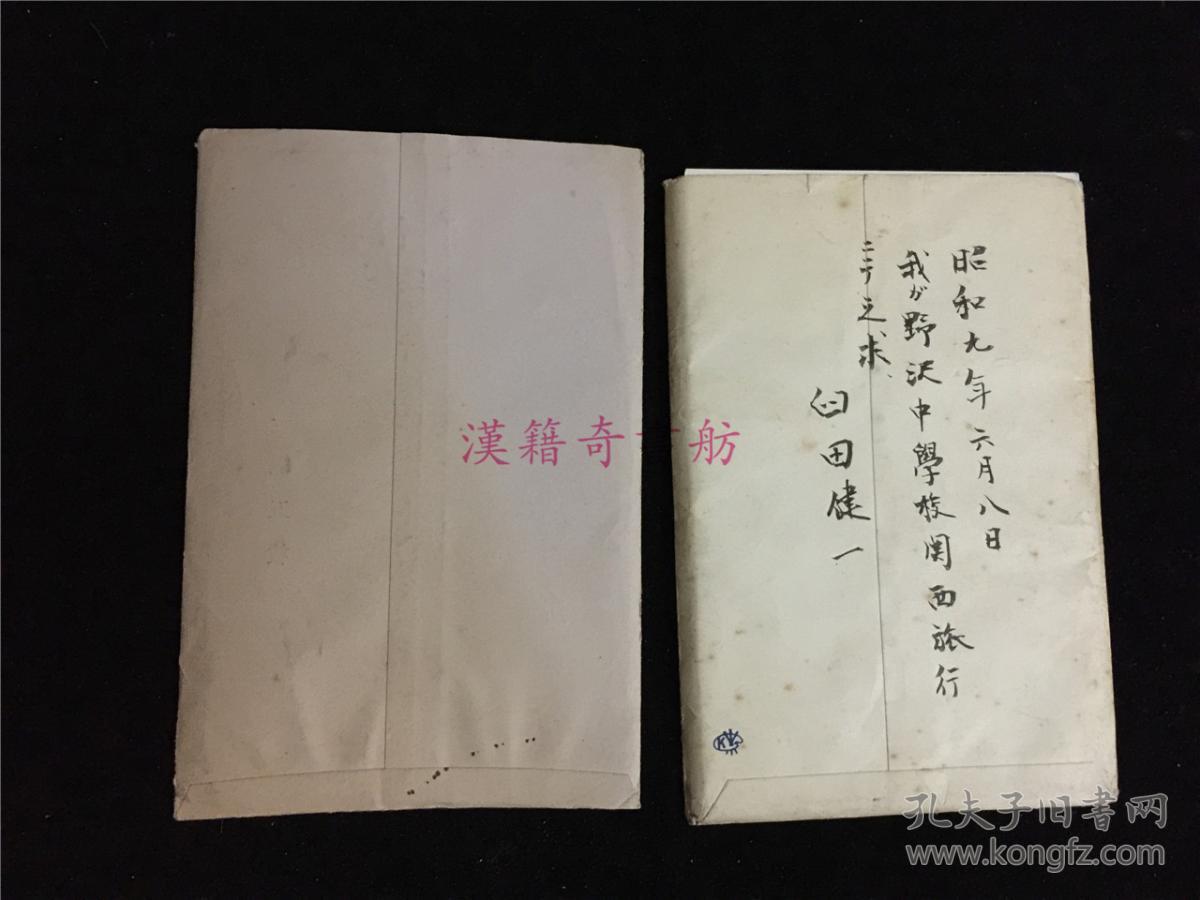 昭和九年六月八日
我が野沢中學校関西旅行
ニテ之求
臼田健一
漢籍奇 舫
孔夫子旧書网
www.kongfz.com